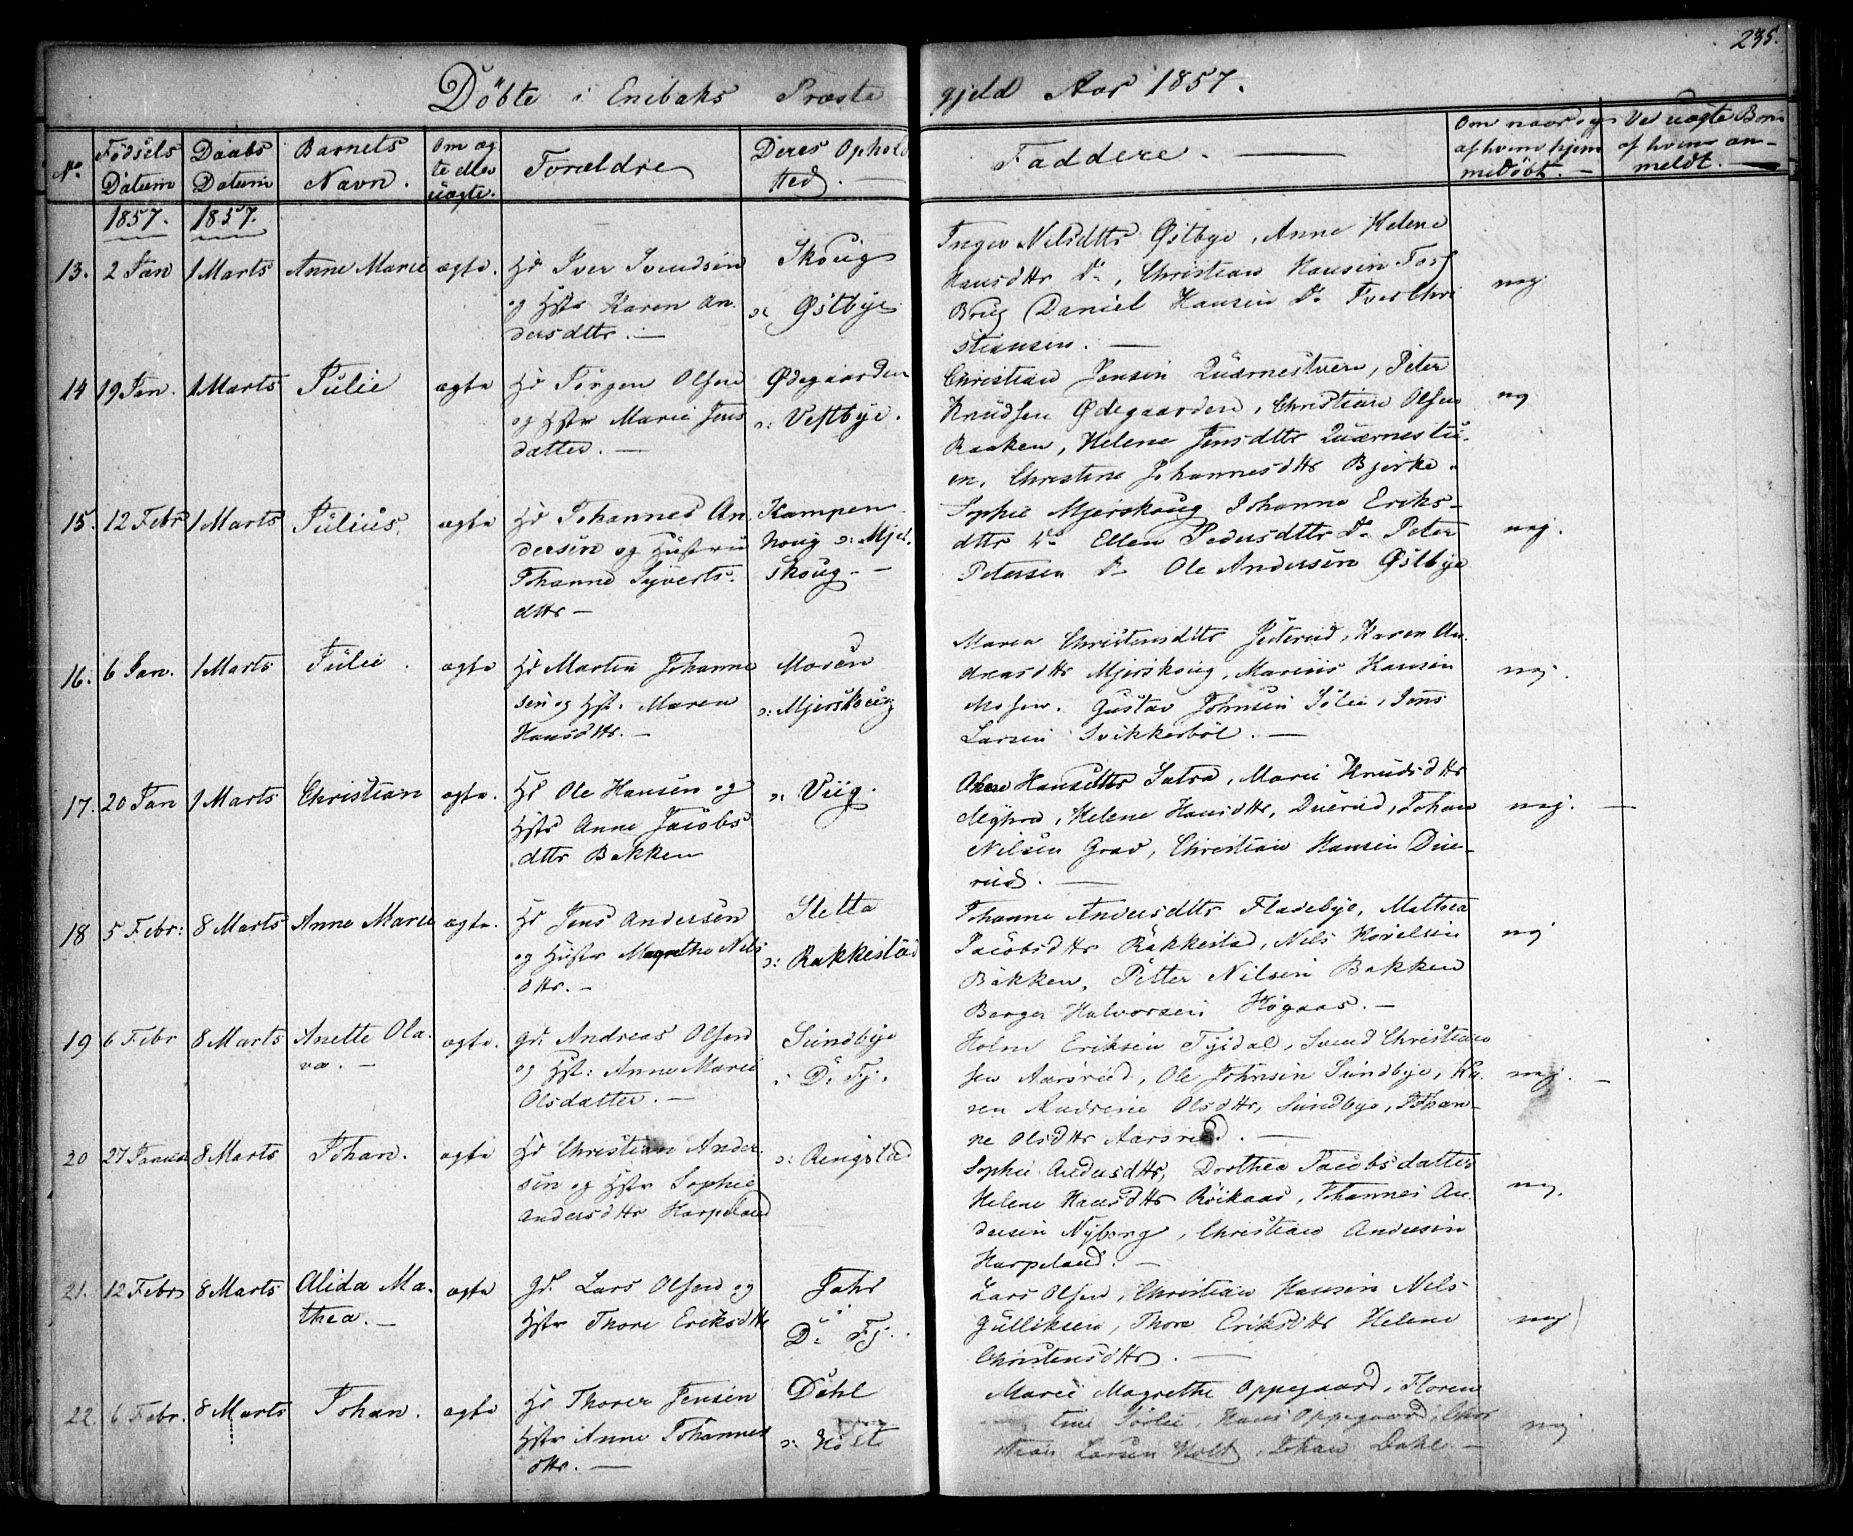 235.
Döbte i Enebaks Præste gjeld Aar 1857.
No Födsels Datum Daabs Datum Barnets Navn. Om ægte eller uægte. Forældre Deres Ophold sted. Faddere. Om naar og af hvem hjemmedöbt. Ved uægte Börn af hvem anmeldt.
1857. 1857.
13. 2 Jan 1 Marts Anne Marie ægte. Hd Iver Svendsön
og Hstr Karen An
dersdttr.
Skoug
Østbye
Inger Nilsdttr Østbye, Anne Helene
Hansdttr Do, Christian Hansen
Brug Daniel Hansen Do Iver Chri
stiansen.
nej
14 19 Jan. 1 Marts Julie ægte Hd Jörgen Olsen
og Hstr Marie Jens
datter.
Ødegaarden
Vestbye.
Christian Jensen Quærnestuen, Peter
Knudsen Ødegaarden, Christian Olsen
Raaken, Helene Jensdttr Quærnestu
en, Christine Johannesdttr Bjerke
nej
15. 12 Febr 1 Marts Julius. ægte Hd Johannes An
dersen og Hustru
Johanne Syverts
dttr
Kampen
houg Mjer
skoug.
Sophie Mjerskoug Johanne Eriks
dttr Do Ellen Pedersdttr Do Peter
Petersen Do Ole Andersen Østbye
nej.
16. 6 Jan. 1 Marts Julie. ægte Hd Martin Johanne
sen og Hst. Maren
Hansdttr.
Mosen
Mjerskoug
Maren Christensdttr Karen An
dreasdttr Mjerskoug, Marius Hansen
Mosen. Gustav Johnsen Sölie, Jens
Larsen Svikkeböl.
nej.
17. 20 Jan 1 Marts Christian ægte. Hd Ole Hansen og
Hstr Anne Jacobs
dttr Bakken
Viig.
Hansdttr Marie Knudsdttr
Helene Hansdttr, Duerud, Johan
Nilsen Grav, Christian Hansen Due
rud.
nej.
18 5 Febr. 8 Marts Anne Marie ægte. Hd Jens Andersen
og Hustr Magrethe Nils
dttr.
Sletta
Rakkestad
Johanne Andersdttr Fladebye, Mathea
Jacobsdttr Rakkestad, Nils
Bakken, Petter Nilsen Bakken
Berger Halvorsen Högaas.
nej
19 6 Febr 8 Marts Anette Ola
va.
ægte. Gd. Andreas Olsen
og Hst: Anne Marie
Olsdatter.
Sundbye
i Do Fj.
Holm Eriksen Tyidal, Svend Christian
sen Aarsrud, Ole Johnsen Sundbye, Ka
ren Andrine Olsdttr, Sundbye, Johan
ne Olsdttr Aarsrud.
nej.
20 27 Januar 8 Marts Johan. ægte Hd Christian Ander
sen og Hstr Sophie
Andersdttr Harpeland
Ringstad
Sophie Andersdttr, Dorthea Jacobsdatter
Helene Hansdttr Röikaas, Johannes An
dersen Nyborg, Christian Andersen
Harpeland.
nej.
21. 12 Febr 8 Marts Alida Ma
thea.
ægte Gd. Lars Olsen og
Hstr Thore Eriksdttr
Jahr
Do Fj.
Lars Olsen, Christian Hansen Nils
Gulliksen, Thore Eriksdttr Helene
Christensdttr.
nej
22 6 Febr. 8 Marts Johan. ægte Hd Thorer Jensen
Hstr Anne Johannes
dttr.
Dahl
Holt
Marie Magrethe Oppegaard, Floren
tine Sörlie, Hans Oppegaard, Chri
stian Larsen Holt, Johan Dahl
nej